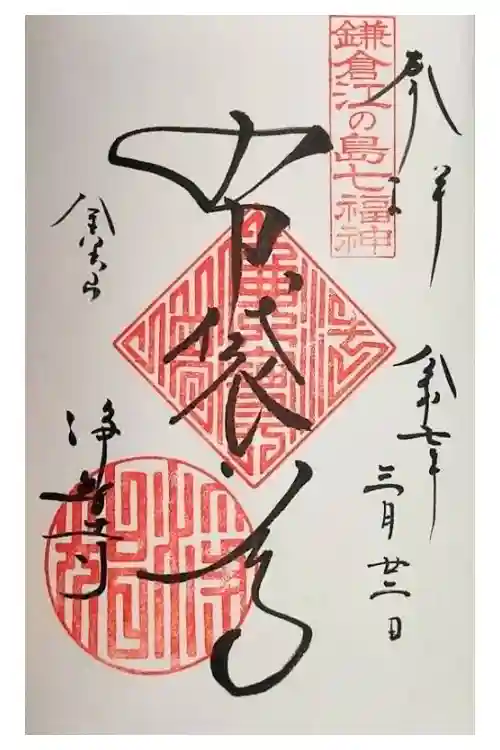 鎌倉江の島七福神
奉拝
令和七年
三月廿二日
布袋尊
金宝山
浄智寺